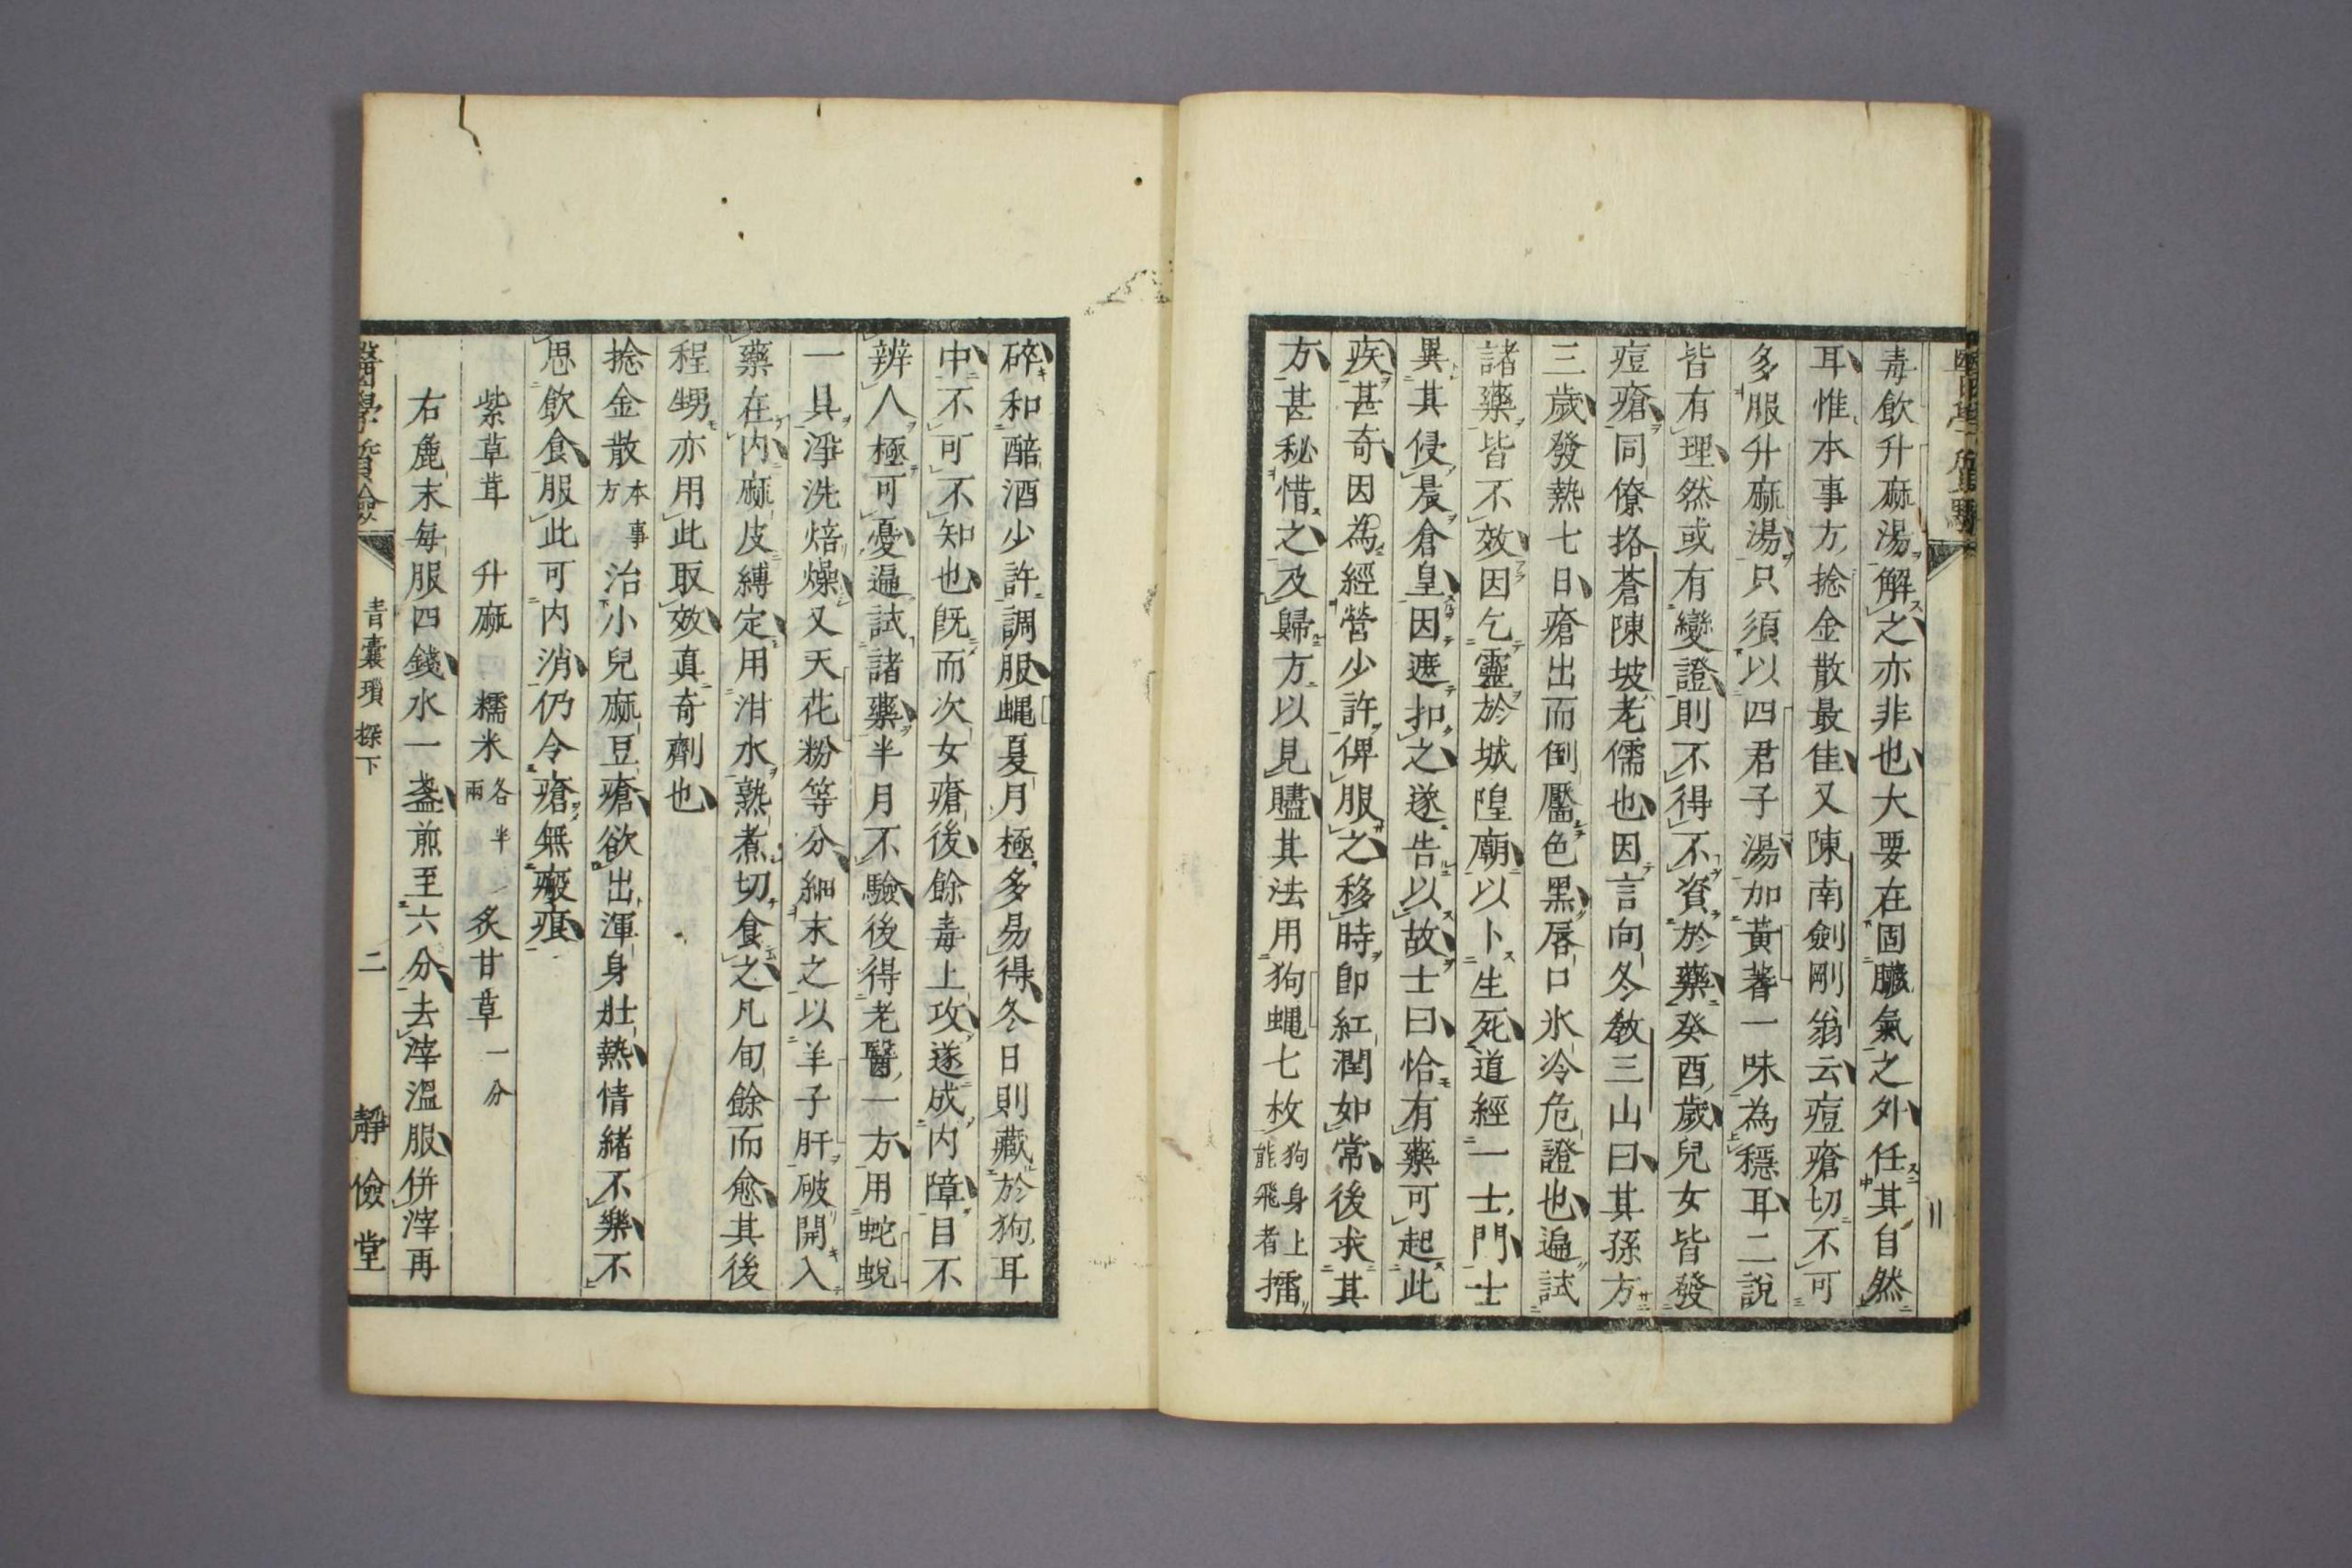 毒飲升麻湯解之亦非也大要在固臟氣之外任其自然
耳惟本事方捴金散最佳又陳南劍剛翁云痘瘡切不可
多服升麻湯只須以四君子湯加黃蓍一味為穩耳二說
皆有理然或有變證則不得不資於藥癸酉歲兒女皆發
痘瘡同僚挌蒼陳坡老儒也因言向冬敎三山曰其孫方
三歲發熱七日瘡出而倒靨色黑唇口氷冷危證也遍試
諸藥皆不效因乞靈於城隍廟以卜生死道經一士門士
異其侵晨倉皇因遮扣之遂告以故士曰恰有藥可起此
疾甚奇因為經營少許俾服之移時即紅潤如常後求其
方甚秘惜之及歸方以見贐其法用狗蝿七枚狗身上能飛者擂
碎和醅酒少許調服蝿夏月極多易得冬日則藏於狗耳
中不可不知也既而次女瘡後餘毒上攻遂成内障目不
辨人極可憂遍試諸藥半月不驗後得老醫一方用蛇蛻
一具淨洗焙燥又天花粉等分細末之以羊子肝破開入
藥在内麻皮縛定用泔水熟煮切食之凡旬餘而愈其後
程甥亦用此取效真奇劑也
捴金散本事方治小兒麻豆瘡欲出渾身壯熱情緒不樂不
思飲食服此可内消仍令瘡無瘢痕
紫草茸 升麻 糯米各半兩 炙甘草一分
右麄末每服四錢水一盞煎至六分去滓溫服併滓再
醫學質驗 青囊瑣探下 二 靜儉堂